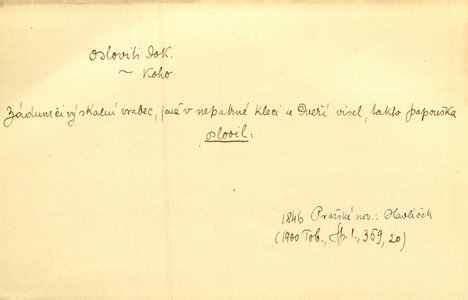 osloviti dok.
~ koho
Zádumčivý skalní vrabec, jenž v nepatrné kleci u dveří visel, takto papouška
oslovil:
1846 Pražské nov.: Havlíček
(1900 Tob., Sp. 1, 359, 20)